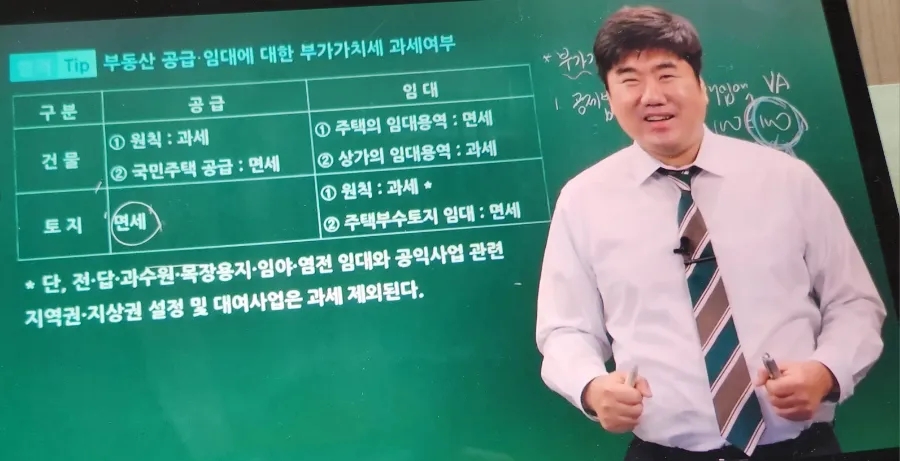 Tip 부동산 공급·임대에 대한 부가가치세 과세여부
구 분 공 급 임 대
건 물 ① 원칙 : 과세 ① 주택의 임대용역 : 면세
② 국민주택 공급 : 면세 ② 상가의 임대용역 : 과세
토 지 면세 ① 원칙 : 과세 *
② 주택부수토지 임대 : 면세
* 단, 전·답·과수원·목장용지·임야·염전 임대와 공익사업 관련
지역권·지상권 설정 및 대여사업은 과세 제외된다.
* 부가
1. 공제
VA
100